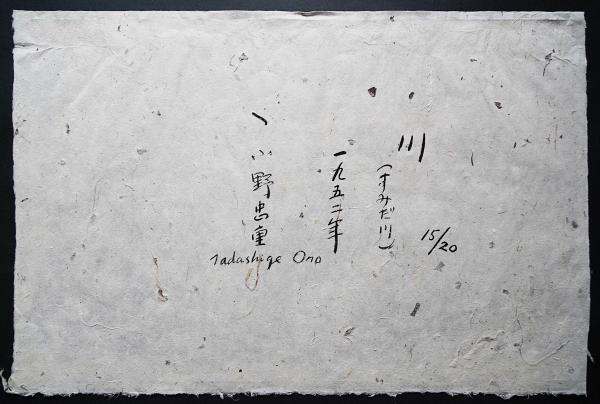 川
(すみだ川)
15/20
一九五二年
小野忠重
Tadashige Ono